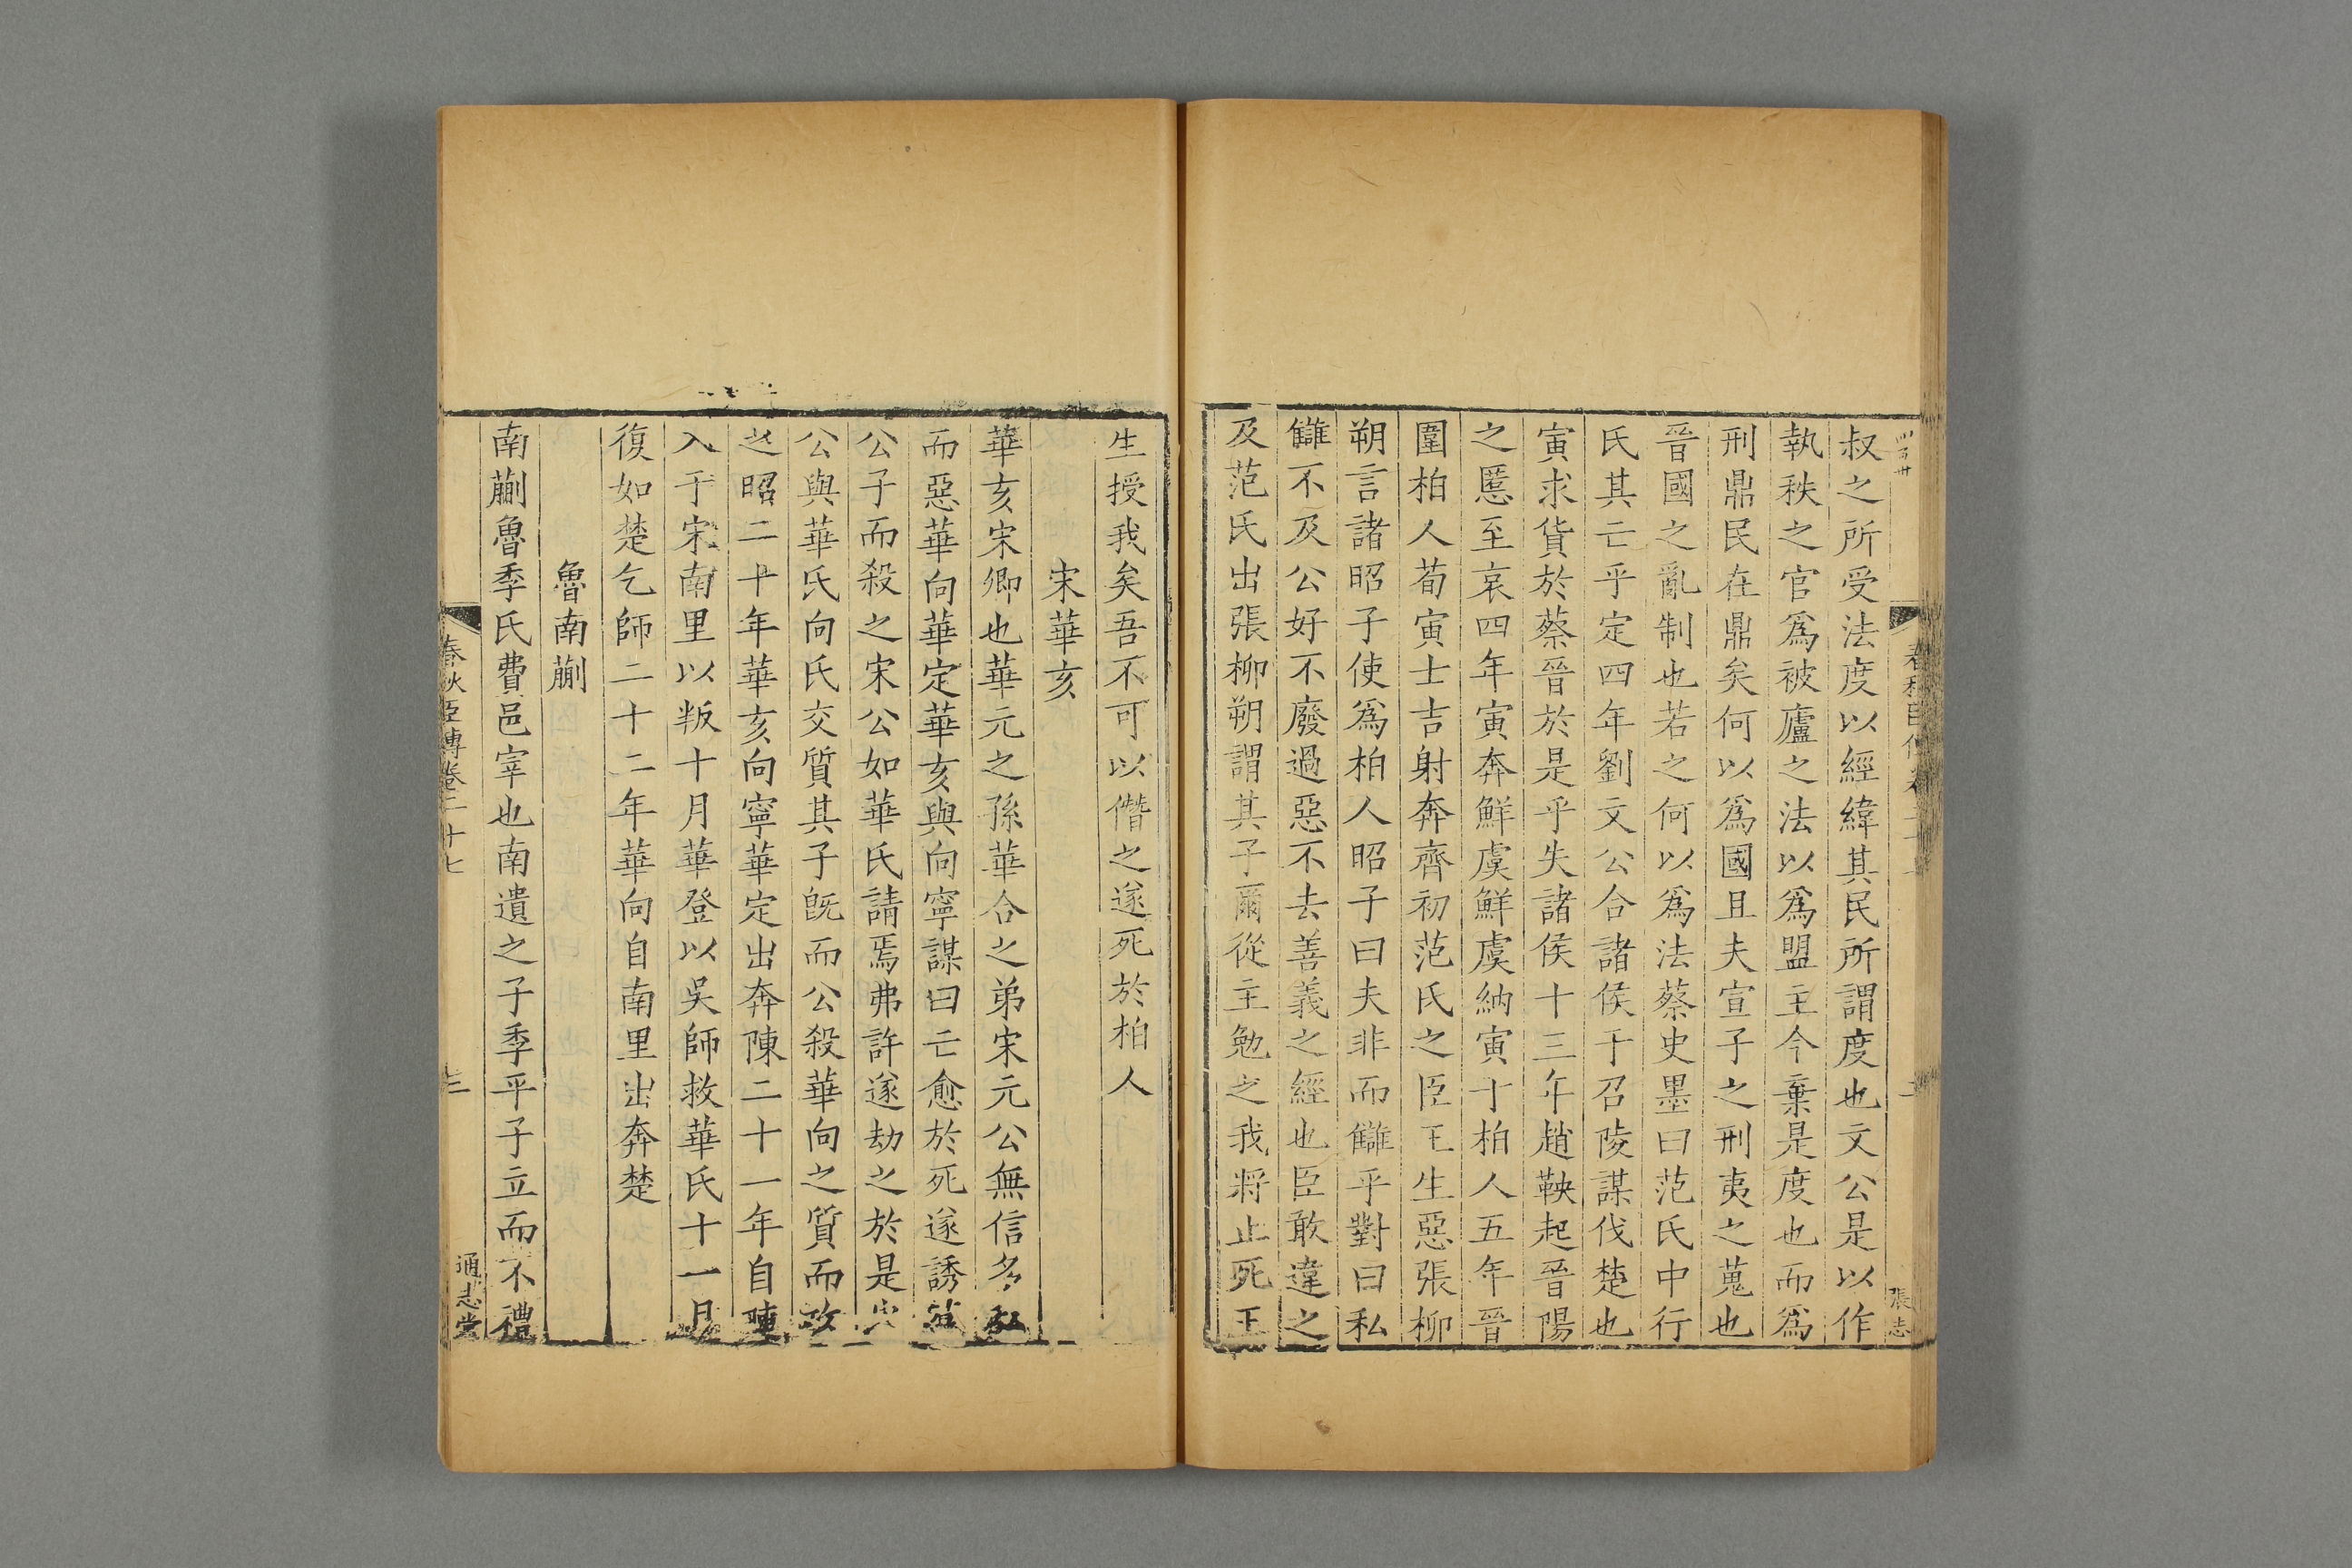 叔之所受法度以經緯其民所謂度也文公是以作
執秩之官爲被廬之法以爲盟主今棄是度也而爲
刑鼎民在鼎矣何以爲國且夫宣子之刑夷之蒐也
晉國之亂制也若之何以爲法蔡史墨曰范氏中行
氏其亡乎定四年劉文公合諸侯于召陵謀伐楚也
寅求貨於蔡晉於是乎失諸侯十三年趙鞅起晉陽
之慝至哀四年寅奔鮮虞鮮虞納寅于柏人五年晉
圍柏人荀寅士吉射奔齊初范氏之臣王生惡張柳
朔言諸昭子使爲柏人昭子曰夫非而讎乎對曰私
讎不及公好不廢過惡不去善義之經也臣敢違之
及范氏出張柳朔謂其子爾從主勉之我將止死王
生授我矣吾不可以僭之遂死於柏人
宋華亥
華亥宋卿也華元之孫華合之弟宋元公無信多私
而惡華向華定華亥與向寧謀曰亡愈於死遂誘羣
公子而殺之宋公如華氏請焉弗許遂劫之於是宋
公與華氏向氏交質其子旣而公殺華向之質而攻
之昭二十年華亥向寧華定出奔陳二十一年自陳
入于宋南里以叛十月華登以吳師救華氏十一月
復如楚乞師二十二年華向自南里出奔楚
魯南蒯
南蒯魯季氏費邑宰也南遺之子季平子立而不禮
春秋臣傳卷二十七
通志堂